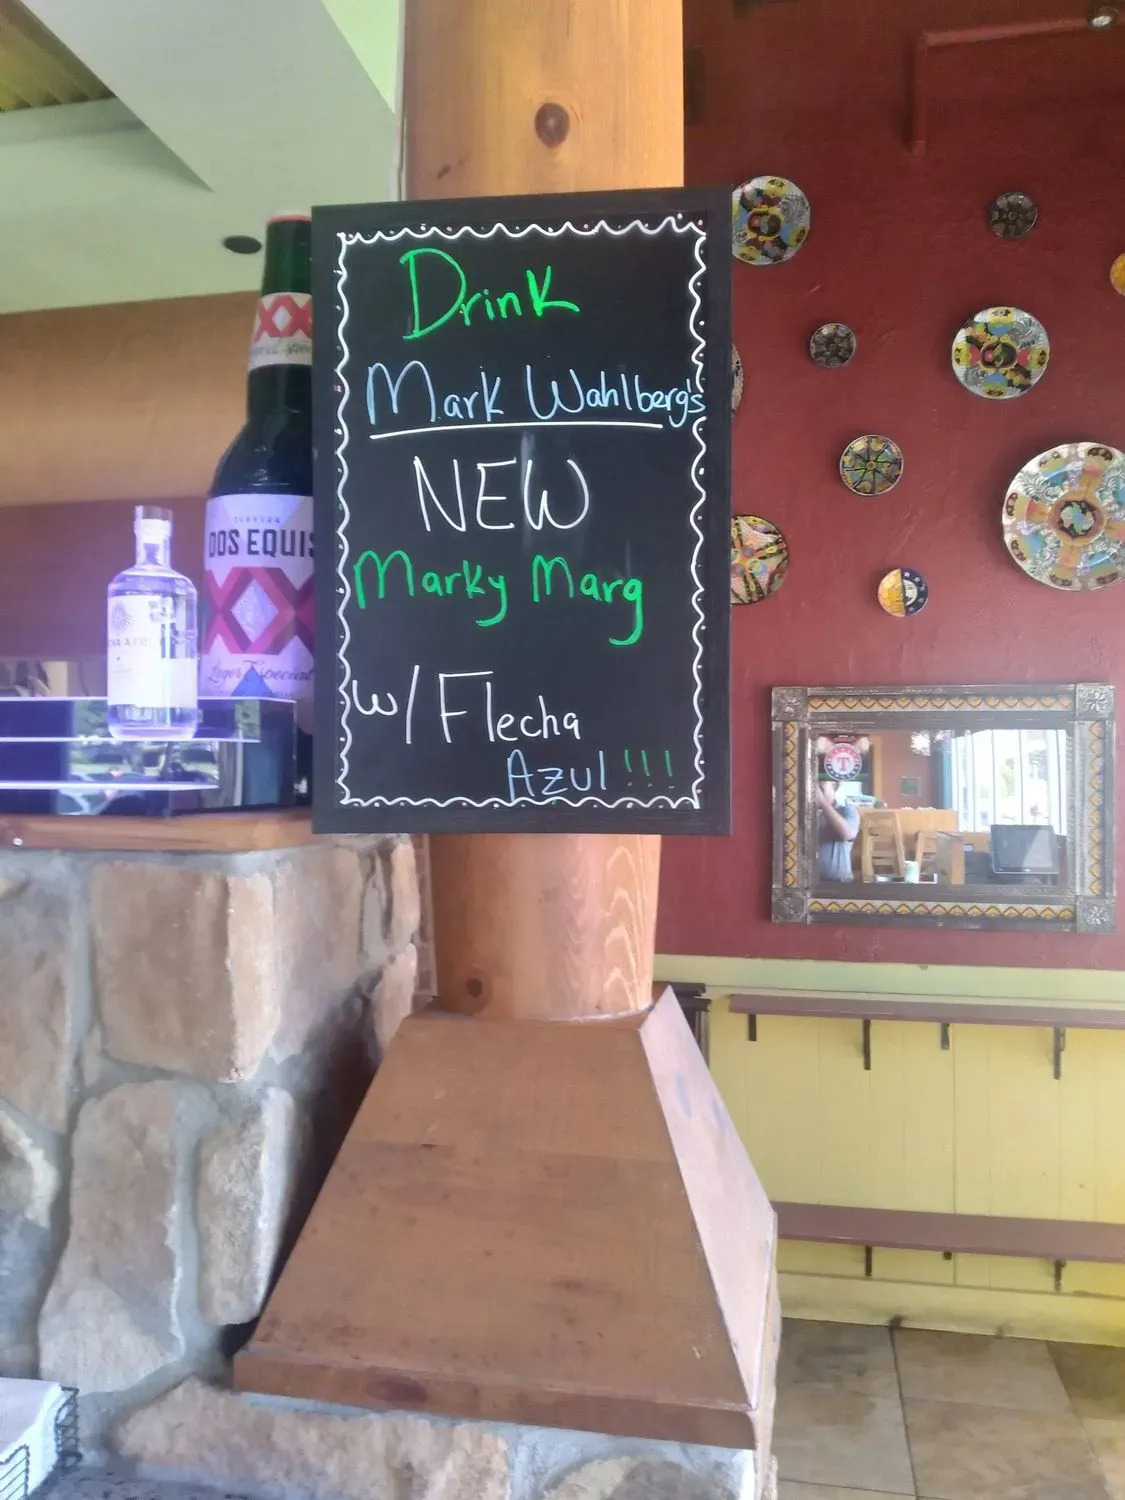 Drink
Mark Wahlberg's
NEW
Marky Marg
w/ Flecha
Azul!!!
XX
CERVEZA
DOS EQUIS
XX
Lager Especial
T